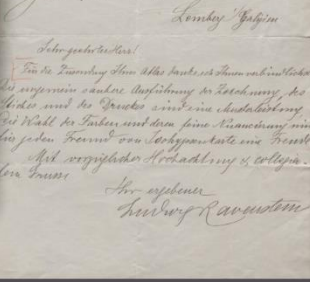 Lemberg / Galizien
Sehr geehrter Herr!
Für die Zusendung Ihres Atlas danke ich Ihnen verbindlichst
die ungemein saubere Ausführung der Zeichnung, des
Stiches und des Druckes sind eine Musterleistung
Die Wahl der Farben und deren feine Nuancirung
für jeden Freund von Isohypsenkarte eine Freude
Mit vorzüglicher Hochachtung & collegia-
lem Grusse
Ihr ergebener
Ludwig Ravenstein